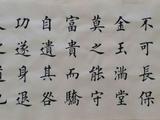 不可長保
金玉滿堂
莫之能守
富貴而驕
自遺其咎
功遂身退
之道也